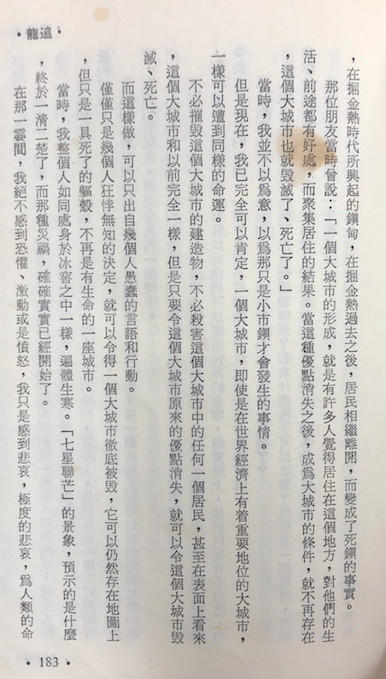 ・龍追・
，在掘金熱時代所興起的鎮甸，在掘金熱過去之後，居民相繼離開，而變成了死鎮的事實。
那位朋友當時曾說：「一個大城市的形成，就是有許多人覺得居住在這個地方，對他們的生
活、前途都有好處，而聚集居住的結果。當這種優點消失之後，成爲大城市的條件，就不再存在
，這個大城市也就毀滅了、死亡了。」
當時，我並不以爲意，以爲那只是小市鎮才會發生的事情。
但是現在，我已完全可以肯定，一個大城市，即使是在世界經濟上有着重要地位的大城市，
一樣可以遭到同樣的命運。
不必摧毀這個大城市的建造物，不必殺害這個大城市中的任何一個居民，甚至在表面上看來
，這個大城市和以前完全一樣，但是只要令這個大城市原來的優點消失，就可以令這個大城市毀
滅、死亡。
而這樣做，可以只出自幾個人愚蠢的言語和行動。
僅僅只是幾個人狂悖無知的決定，就可以令得一個大城市徹底被毀，它可以仍然存在地圖上
，但只是一具死了的軀殼，不再是有生命的一座城市。
當時，我整個人如同處身於冰窖之中一樣，遍體生寒。「七星聯芒」的景象，預示的是什麼
，終於一清二楚了，而那種災禍，確確實實已經開始了。
在那一霎間，我絕不感到恐懼、激動或是憤怒，我只是感到悲哀，極度的悲哀，爲人類的命
・183・